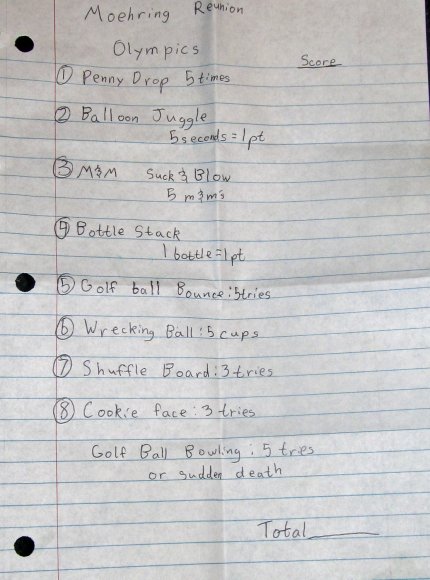 Moehring Reunion
Olympics
Score
① Penny Drop 5 times
② Balloon Juggle
5 seconds = 1 pt
③ M&M Suck & Blow
5 m&m's
④ Bottle Stack
1 bottle = 1 pt
⑤ Golf ball Bounce : 5 tries
⑥ Wrecking Ball : 5 cups
⑦ Shuffle Board : 3 tries
⑧ Cookie face : 3 tries
Golf Ball Bowling : 5 tries
or sudden death
Total